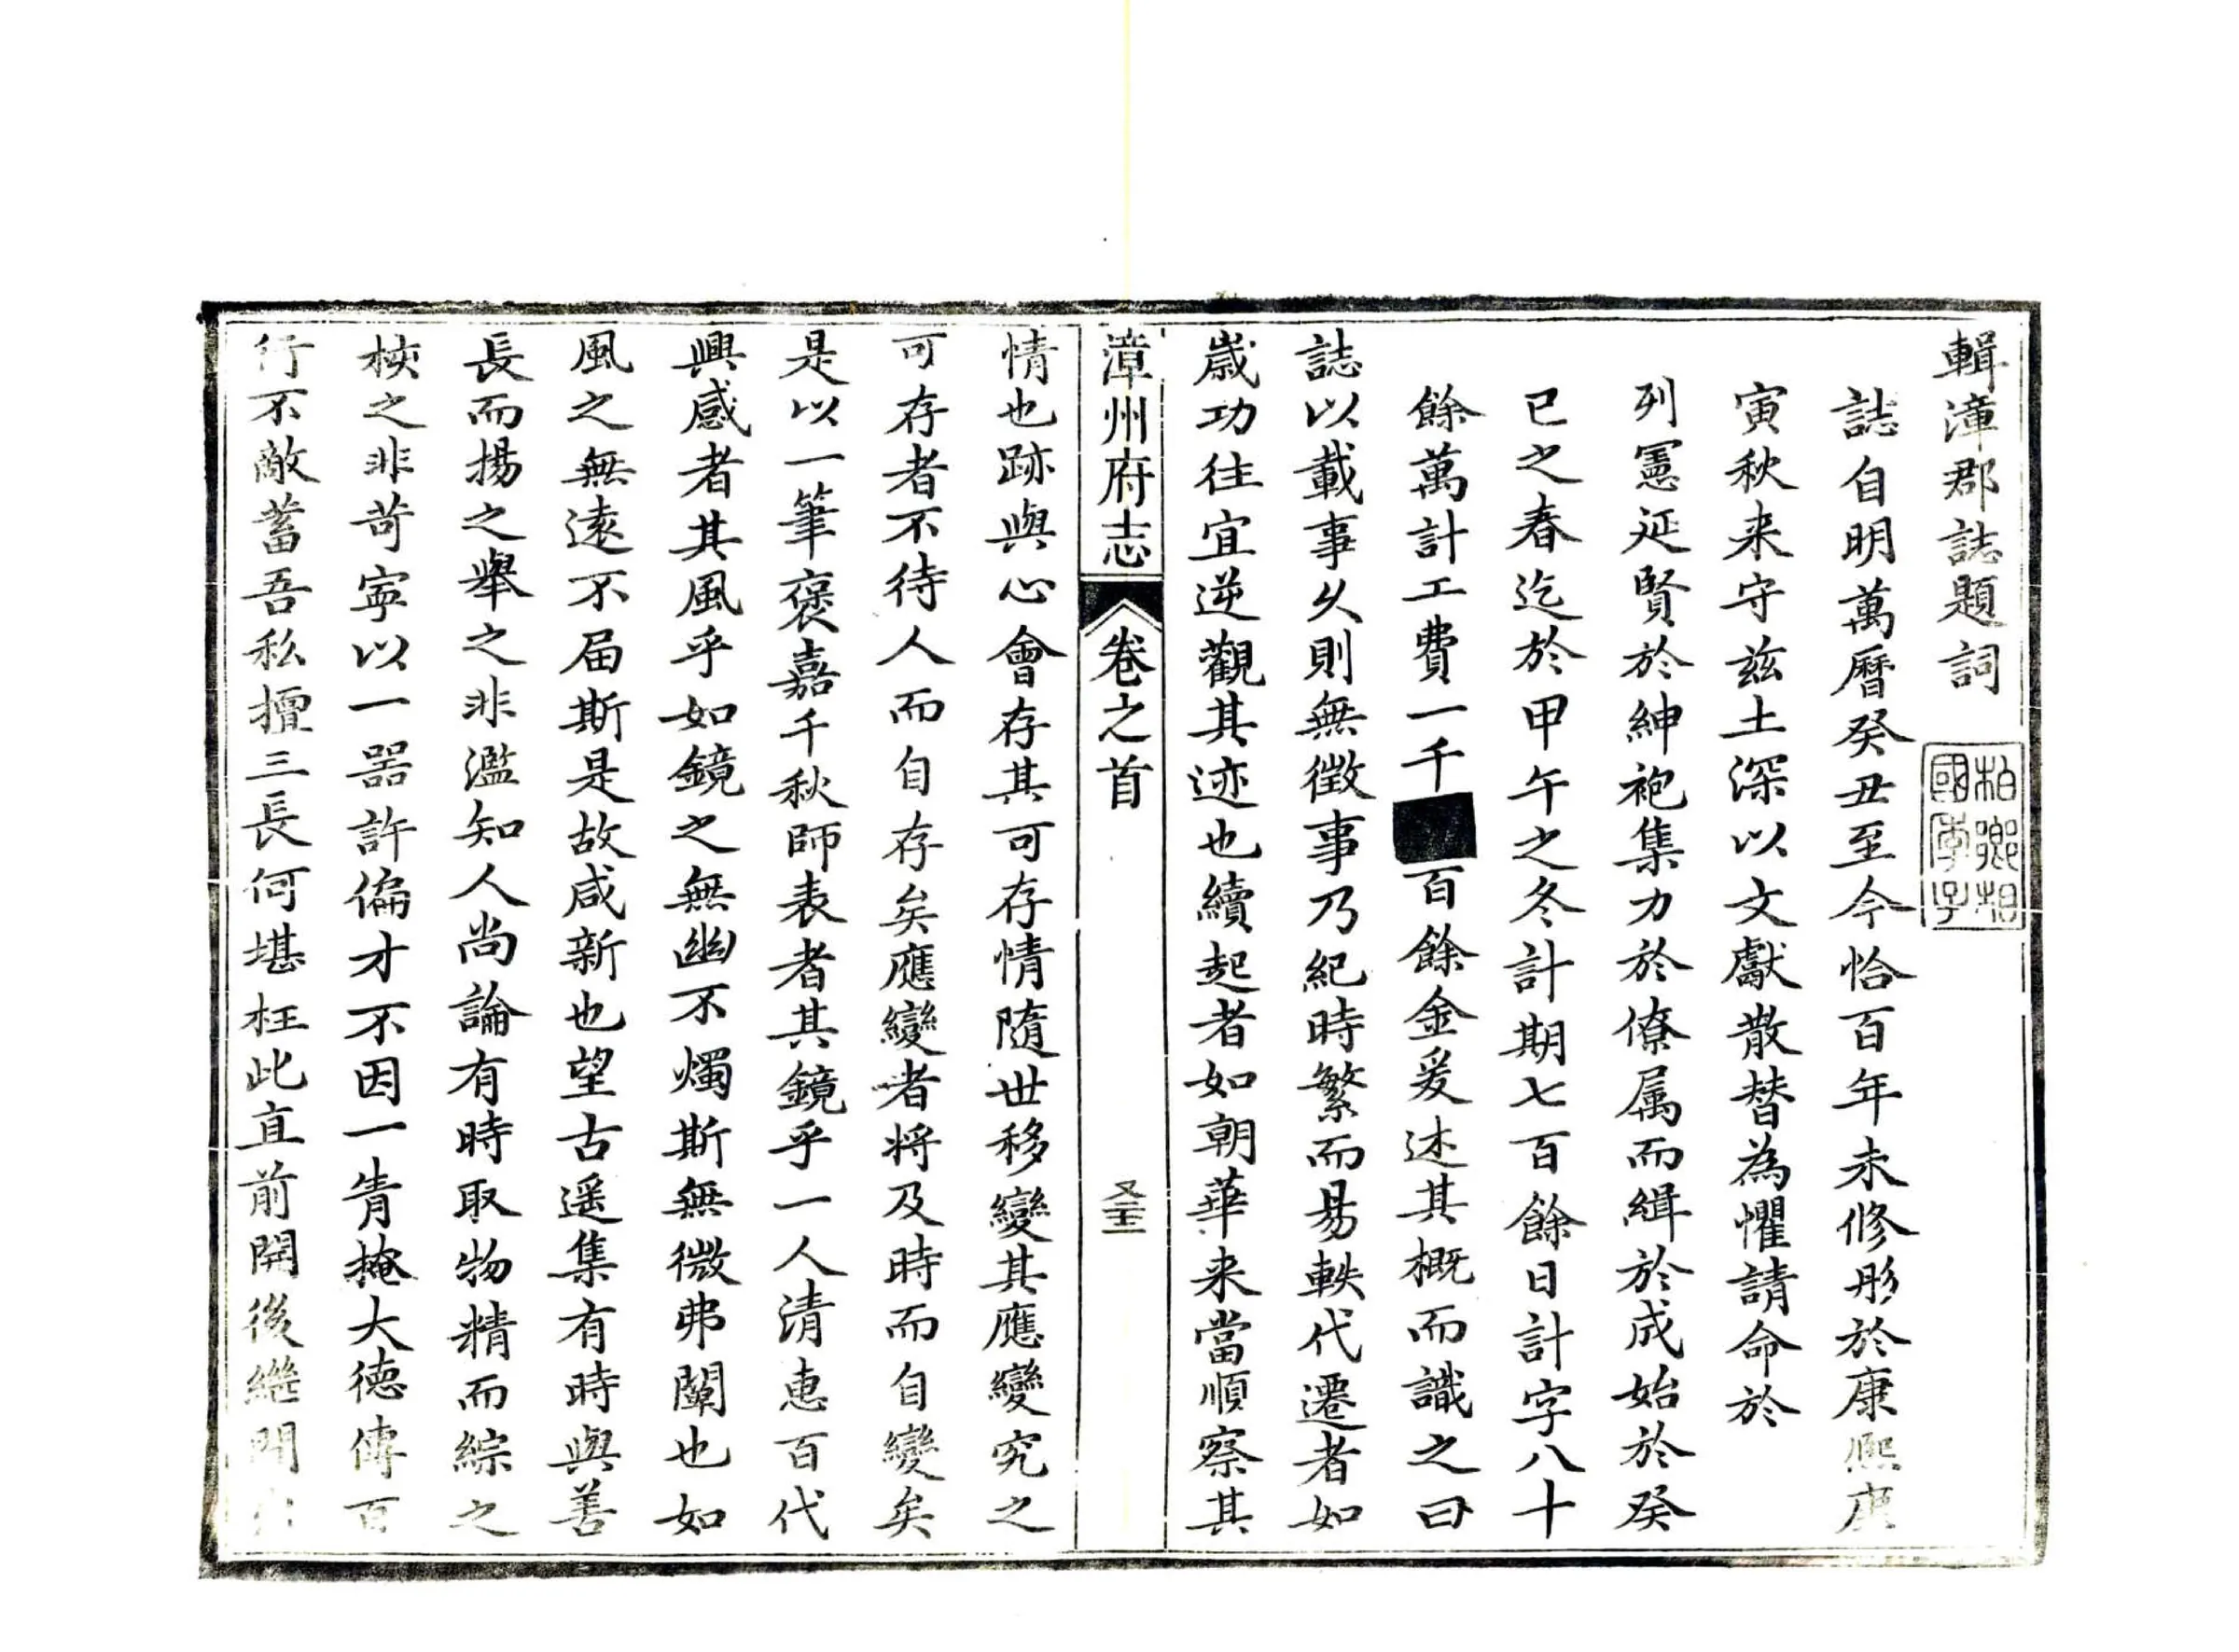 輯漳郡誌題詞
柏鄉相
國
誌自明萬曆癸丑至今恰百年未修彤於康熙庚
寅秋来守兹土深以文獻散替為懼請命於
列憲延賢於紳袍集力於僚属而緝於成始於癸
巳之春迄於甲午之冬計期七百餘日計字八十
餘萬計工費一千百餘金爰述其概而識之曰
誌以載事乆則無徵事乃紀時繁而易軼代遷者如
嵗功往宜逆觀其迹也續起者如朝華来當順察其
漳州府志 卷之首
情也跡與心會存其可存情隨世移變其應變究之
可存者不待人而自存矣應變者将及時而自變矣
是以一筆褒嘉千秋師表者其鏡乎一人清惠百代
興感者其風乎如鏡之無幽不燭斯無微弗闡也如
風之無遠不届斯是故咸新也望古遥集有時與善
長而揚之舉之非濫知人尚論有時取物精而綜之
核之非苛寧以一噐許偏才不因一眚掩大德傳百
行不敵蓄吾私擅三長何堪枉此直前開後繼間